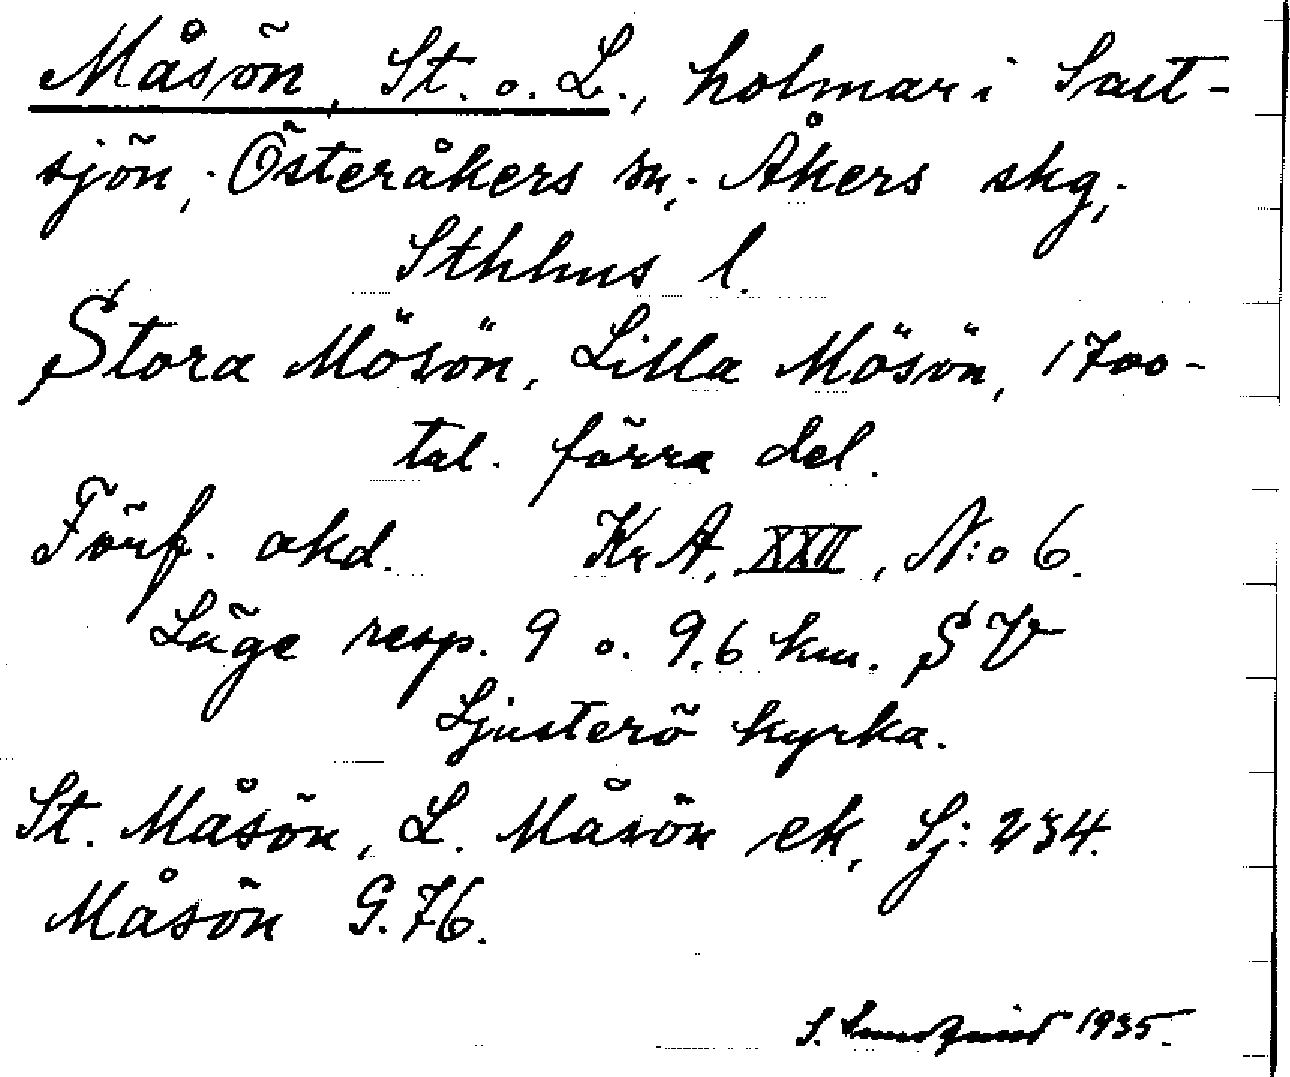 Måsön, St. o. L., holmar i Salt-
sjön; Österåkers sn; Åkers skg;
Sthlms l.
Stora Mösön, Lilla Mösön, 1700-
tal. förra del.
Förf. okd. Kr A, XXII, N:o 6.
Läge resp. 9 o. 9,6 km. SV
Ljusterö kyrka.
St. Måsön, L. Måsön ek, Sj: 234.
Måsön G. 76.
S. 1935.